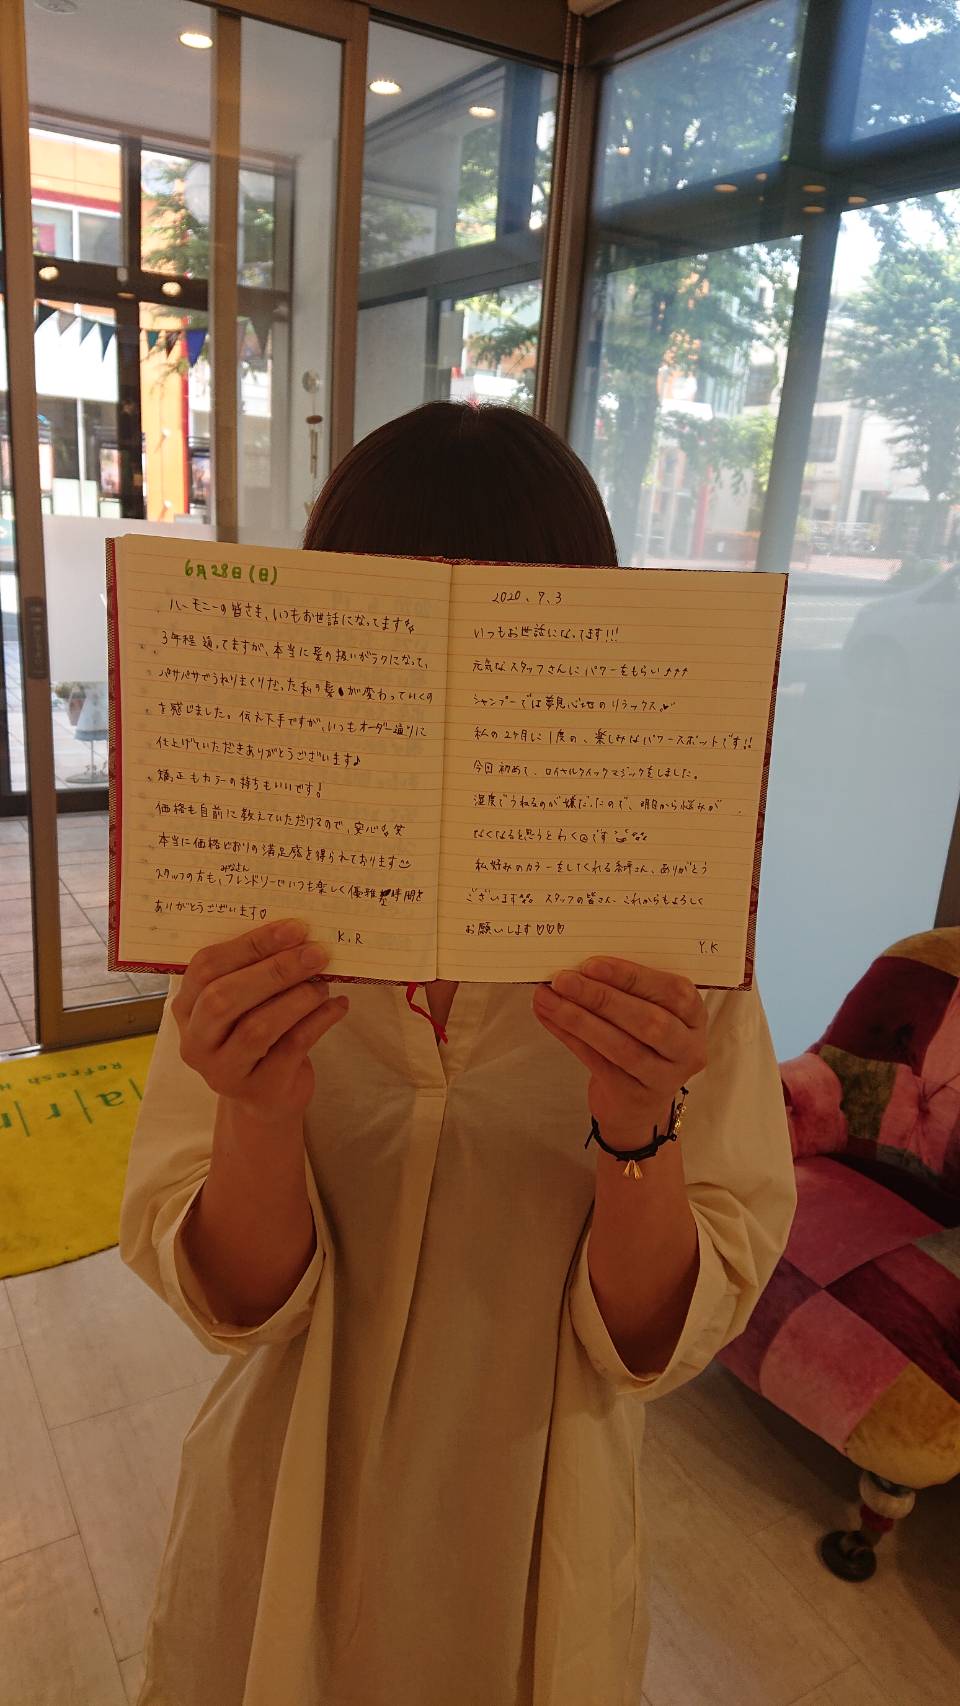 6月28日(日)
ハーモニーの皆さま、いつもお世話になってます
3年程通ってますが、本当に髪の扱いがラクになって、
パサパサでうねりまくりだった私の髪が変わっていくの
を感じました。伝え下手ですが、いつもオーダー通りに
仕上げていただきありがとうございます♪
矯正もカラーの持ちもいいです!
価格も目前に教えていただけるので、安心 笑
本当に価格どおりの満足感を得られております
みなさん
スタッフの方も、フレンドリーでいつも楽しく優雅時間を
ありがとうございます♡
K.R
2020.7.3
いつもお世話になってます!!!
元気なスタッフさんにパワーをもらい↗↗↗
シャンプーでは夢見心地のリラックス
私の2ヶ月に1度の、楽しみなパワースポットです!!
今回初めて、ロイヤルクイックマジックをしました。
湿度でうねるのが嫌だったので、明日から悩みが
なくなると思うとわくわくです
私好みのカラーをしてくれる さん、ありがとう
ございます スタッフの皆さん、これからもよろしく
お願いします♡♡♡
Y.K
Refresh H
a|r|